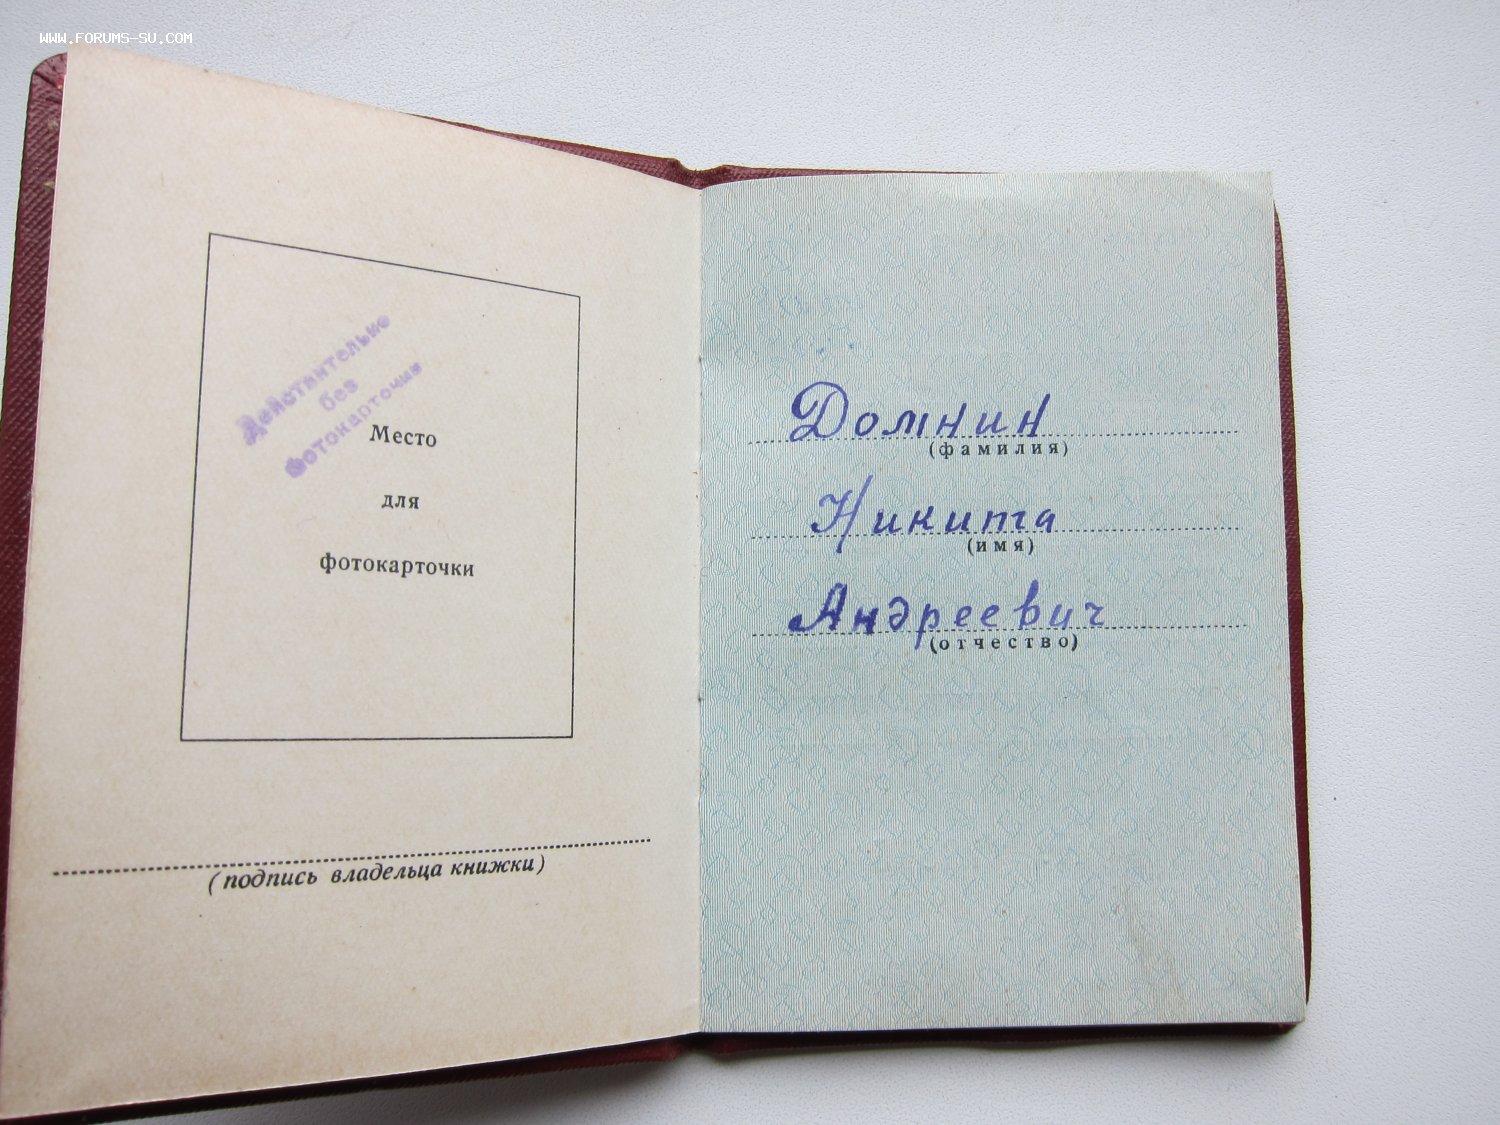 WWW.FORUMS-SU.COM
Действительно
без
фотокарточки
Место
для
фотокарточки
(подпись владельца книжки)
Домнин
(фамилия)
Никита
(имя)
Андреевич
(отчество)